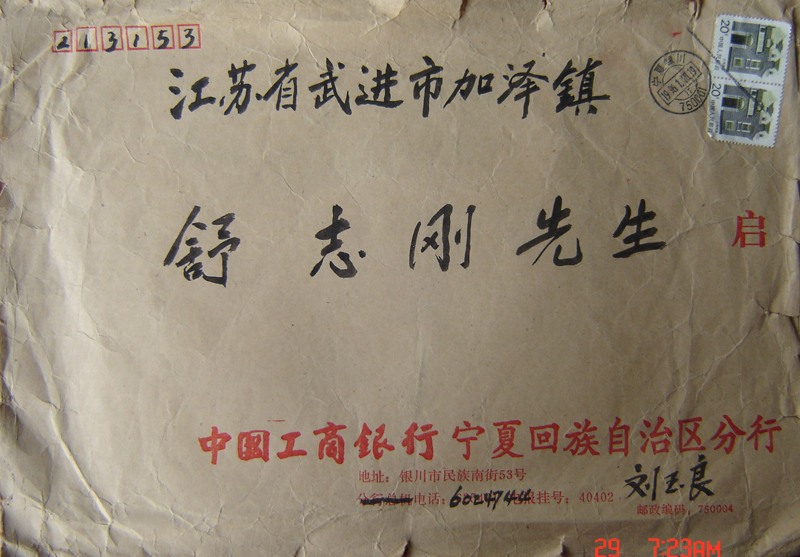 213153
江苏省武进市加泽鎮
舒志刚先生 启
中国工商银行宁夏回族自治区分行
地址：银川市民族南街53号
电话：6024744 电报挂号：40402 刘玉良
邮政编码：750004
20
20
750001
29 7:23AM